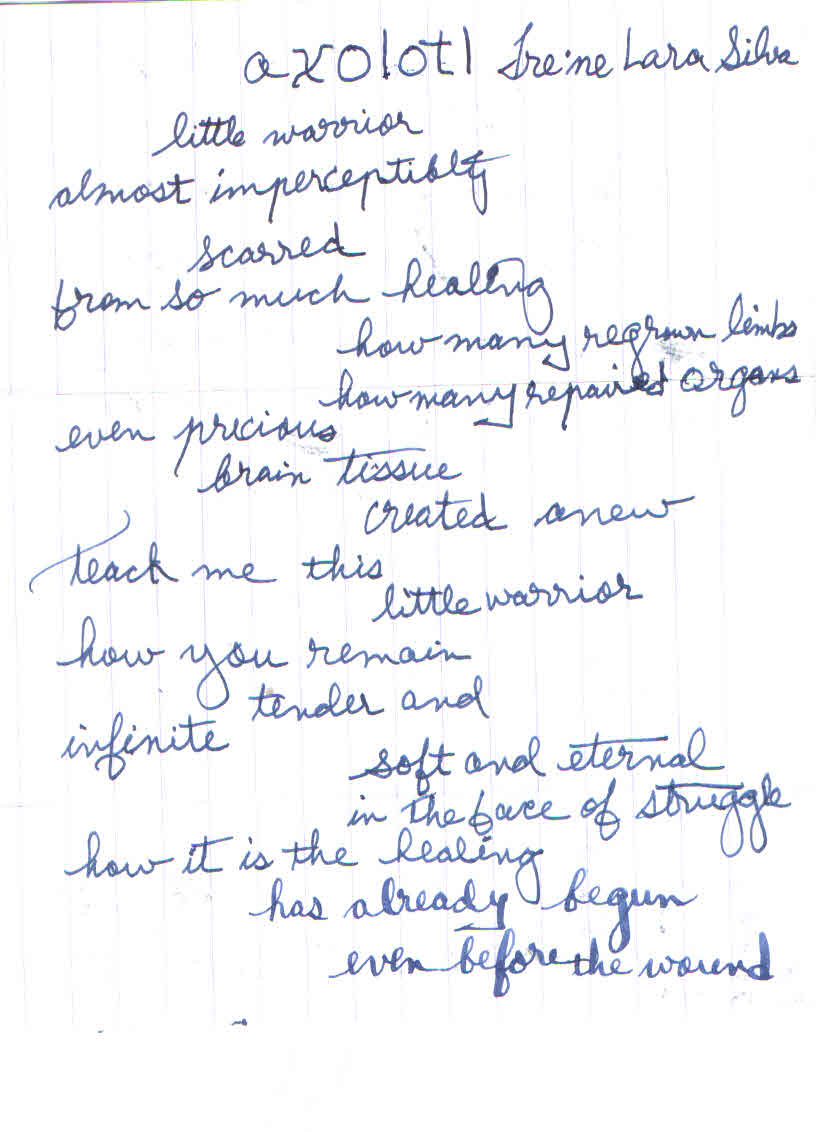 axolotl Ire'ne Lara Silva
little warrior
almost imperceptibly
scarred
from so much healing
how many regrown limbs
how many repaired organs
even precious
brain tissue
created anew
teach me this
little warrior
how you remain
tender and
infinite
soft and eternal
in the face of struggle
how it is the healing
has already begun
even before the wound